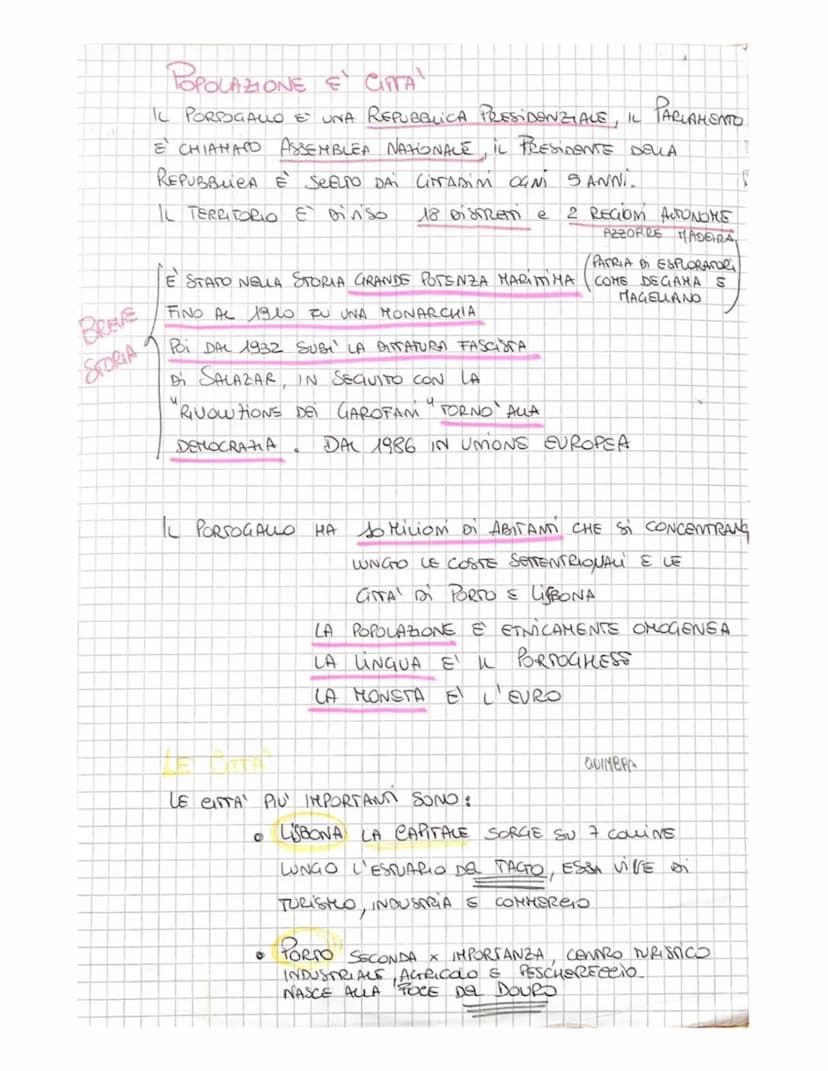 POPOLAZIONE E' CITTA'
IL PORTOGALLO E' UNA REPUBBLICA PRESIDENZIALE, IL PARLAMENTO
E' CHIAMATO ASSEMBLEA NAZIONALE, IL PRESIDENTE DELLA
REPUBBLICA E' SCELTO DAI CITTADINI OGNI 5 ANNI.
IL TERRITORIO E' DIVISO 18 DISTRETTI e 2 REGIONI AUTONOME
AZZORRE MADEIRA
E' STATO NELLA STORIA GRANDE POTENZA MARITTIMA (PATRIA DI ESPLORATORI
COME DEGAMA E
MAGELLANO)
BREVE
STORIA
FINO AL 1910 FU UNA MONARCHIA
POI DAL 1932 SUBI' LA DITTATURA FASCISTA
DI SALAZAR, IN SEGUITO CON LA
"RIVOLUTIONS DEI GAROFANI" TORNO' ALLA
DEMOCRAZIA. DAL 1986 IN UNIONE EUROPEA
IL PORTOGALLO HA 10 MILIONI DI ABITANTI CHE SI CONCENTRANO
LUNGO LE COSTE SETTENTRIONALI E LE
CITTA' DI PORTO E LISBONA
LA POPOLAZIONE E' ETNICAMENTE OMOGENEA
LA LINGUA E' IL PORTOGHESE
LA MONETA E' L'EURO
LE CITTA' QUIMBRA
LE CITTA' PIU' IMPORTANTI SONO:
• LISBONA LA CAPITALE SORGE SU 7 COLLINE
LUNGO L'ESTUARIO DEL TAGO, ESSA VIVE DI
TURISMO, INDUSTRIA E COMMERCIO
• PORTO SECONDA x IMPORTANZA, CENTRO TURISTICO
INDUSTRIALE, AGRICOLO E PESCHERECCIO.
NASCE ALLA FOCE DEL DOURO